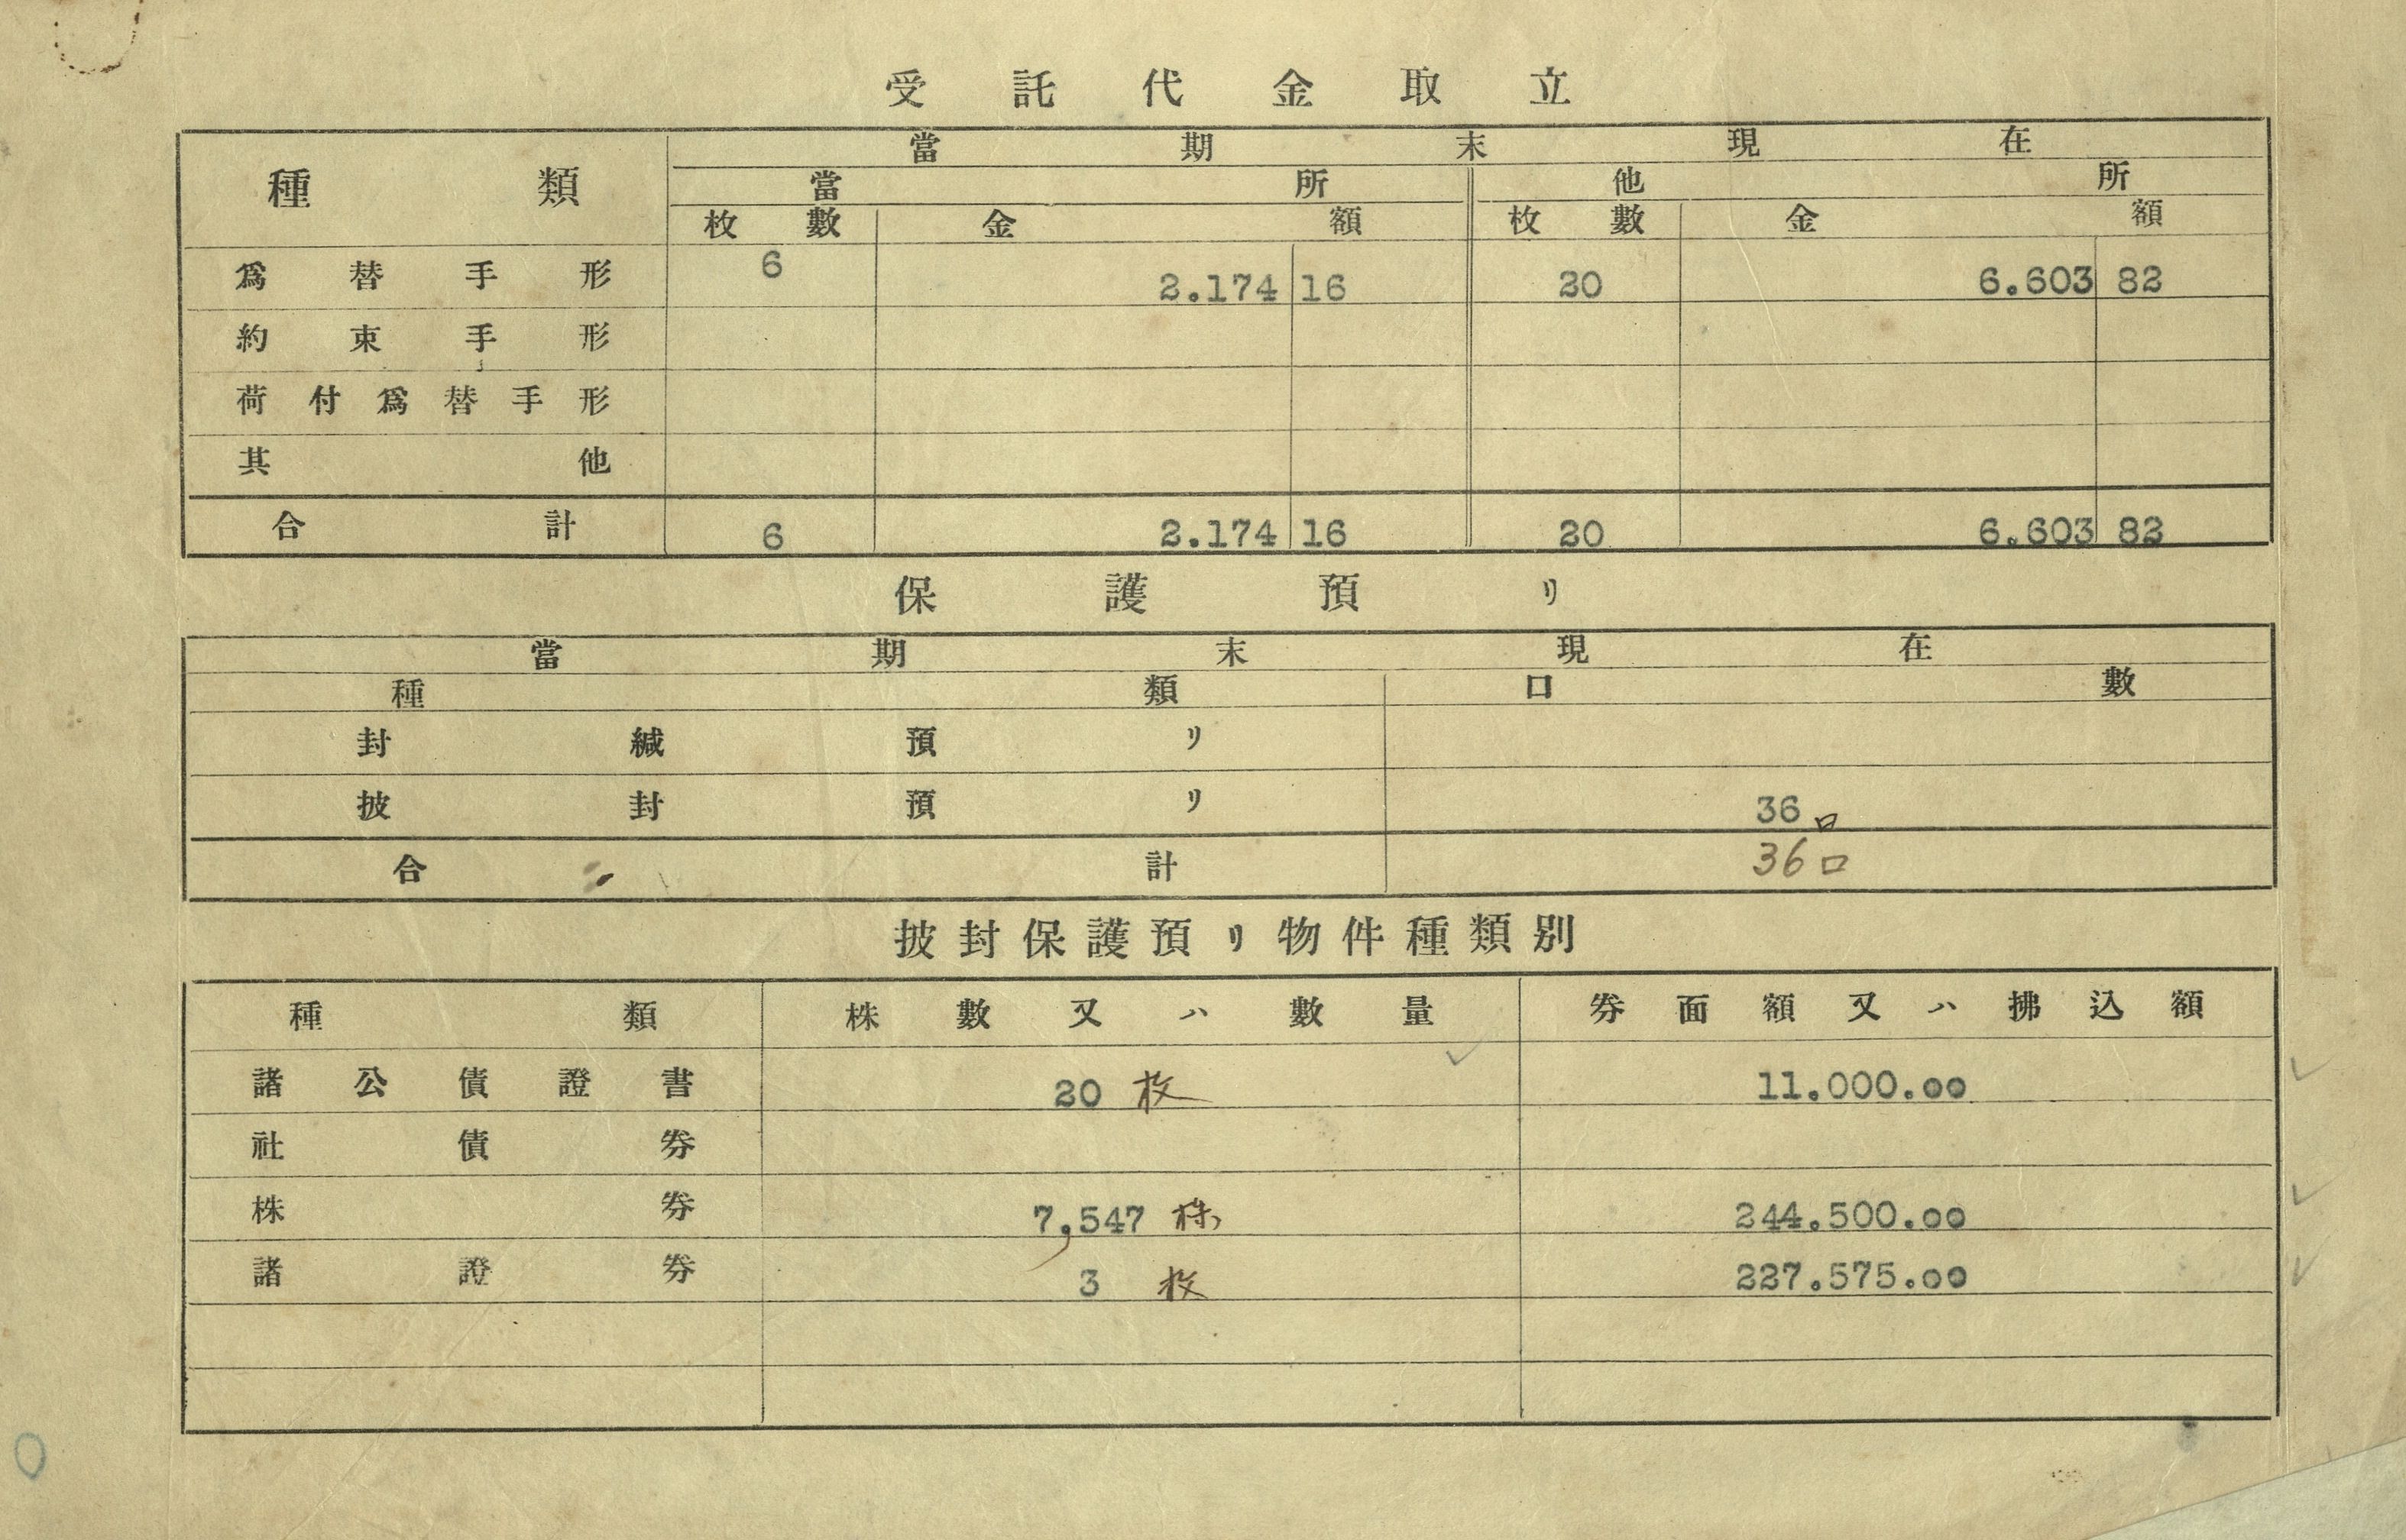 受託代金取立
種類 當期末現在
當所 他所
枚數 金額 枚數 金額
爲替手形 6 2.174 16 20 6.603 82
約束手形
荷付爲替手形
其他
合計 6 2.174 16 20 6.603 82
保護預リ
當期末現在
種類 口數
封緘預リ
披封預リ 36口
合計 36口
披封保護預リ物件種類別
種類 株數又ハ數量 券面額又ハ拂込額
諸公債證書 20枚 11.000.00
社債券
株券 7,547株 244.500.00
諸證券 3枚 227.575.00